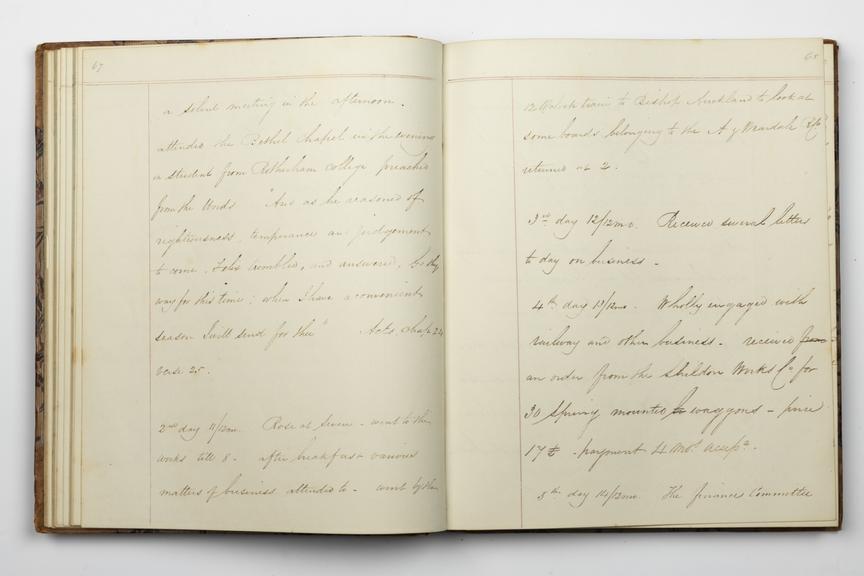 67
a silent meeting in the afternoon.
attended the Bethel Chapel in the evening
a student from Rotherham College preached
from the Words "And as he reasoned of
righteousness, temperance and judgement
to come, Felix trembled, and answered, Go thy
way for this time; when I have a convenient
season I will send for thee" Acts, Chap 24
verse 25.
2nd day 11/12mo. Rose at Seven - went to the
works till 8. after breakfast various
matters of business attended to - went by the
68
12 O'clock train to Bishop Auckland to look at
some boards belonging to the A & Weardale
returned at 2.
3rd day 12/12mo. Received several letters
to day on business -
4th day 13/12mo. Wholly engaged with
railway and other business - received from
an order from the Shildon Works Co for
30 Spring mounted waggons - price
17£ - payment 4 mos accepce.
5th day 14/12mo. The finance Committee